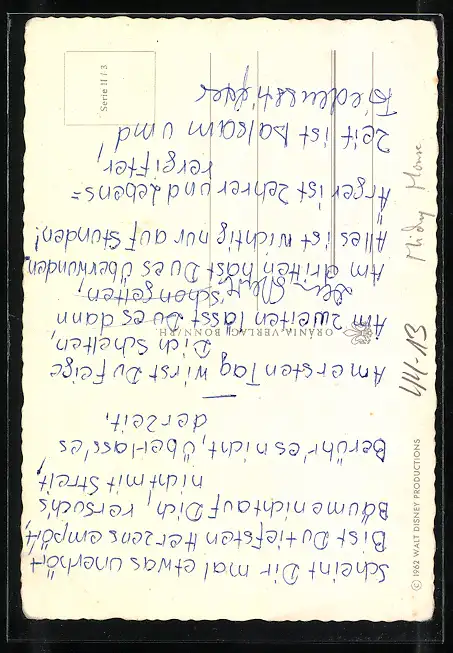 Scheint Dir mal etwas unerhört
Bist Du tiefsten Herzens empört,
Bäume nicht auf Dich, versuch's
nicht mit Streit,
Berühr' es nicht, überlass' es
der Zeit.
Am ersten Tag wirst Du feige
Dich schelten,
Am zweiten lässt Du es dann
schon gelten,
Am dritten hast Du es überwunden,
Alles ist wichtig nur auf Stunden!
Ärger ist Zehrer und Lebens=
vergifter,
Zeit ist Balsam und
Friedensstifter
Serie II / 3
ORANIA-VERLAG, BONN/RH.
© 1962 WALT DISNEY PRODUCTIONS
44-13
Micky Mouse